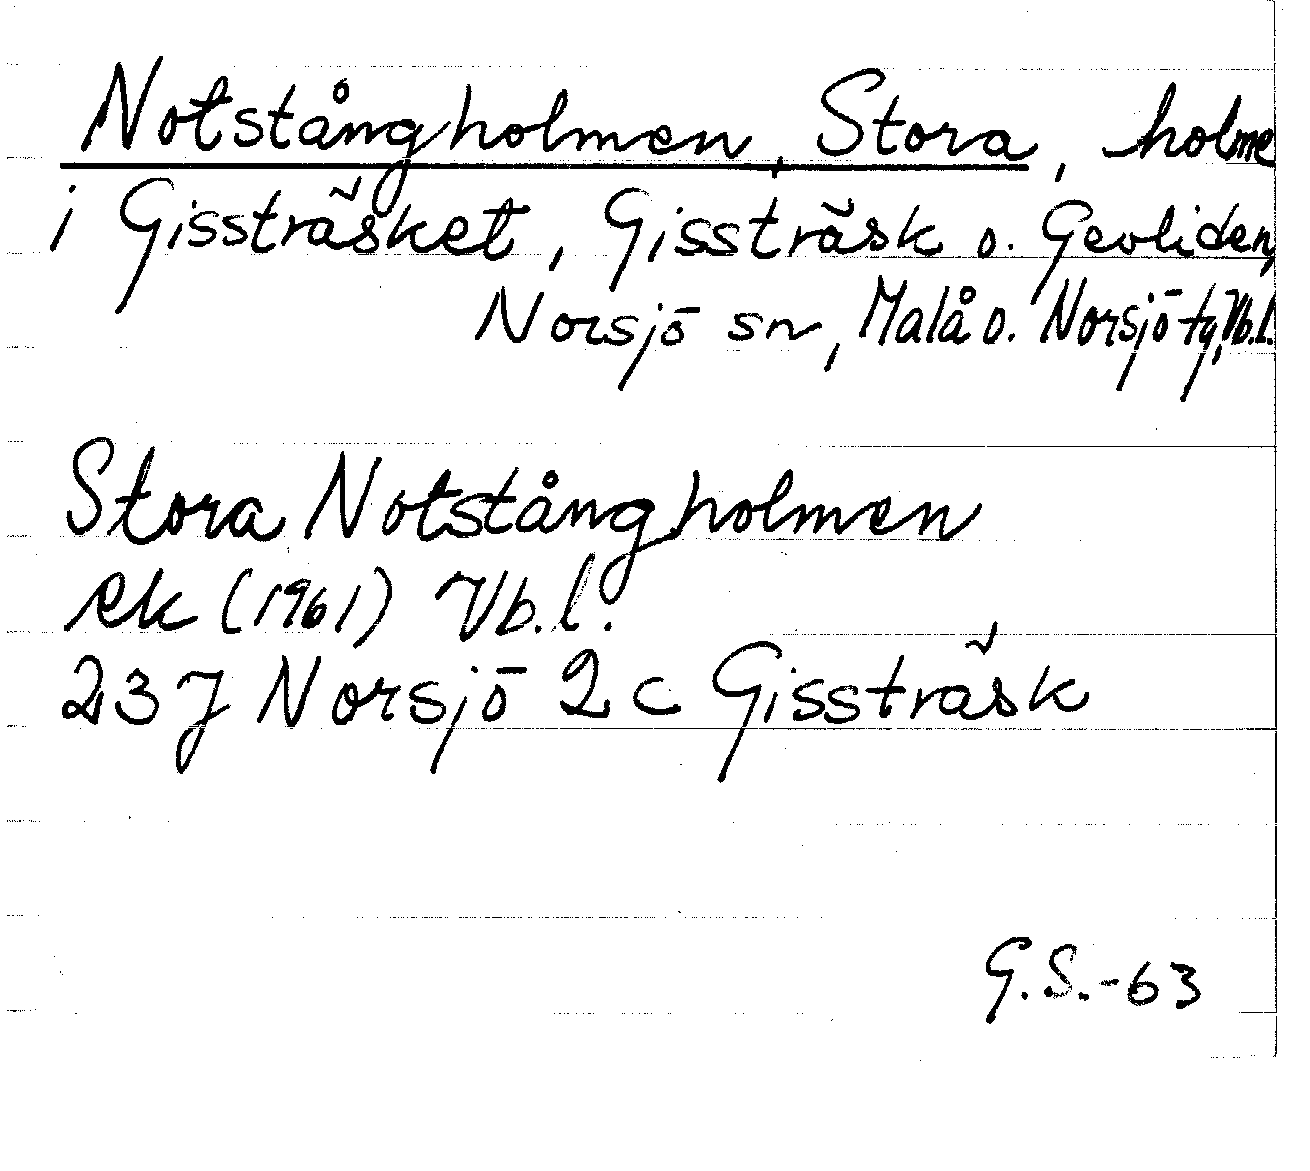 Notstångholmen, Stora, holme
i Gissträsket, Gissträsk o. Gevliden,
Norsjö sn, Malå o. Norsjö tg, Vb.l.
Stora Notstångholmen
ek (1961) Vb.l.
23 J Norsjö 2 c Gissträsk
G.S.-63